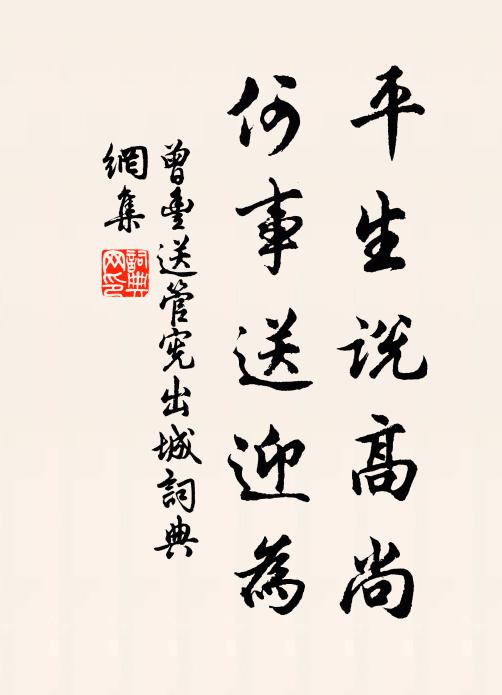 平生説高尚
何事送迎為
曾豐送管宪出城詞典
網集
詞典网印